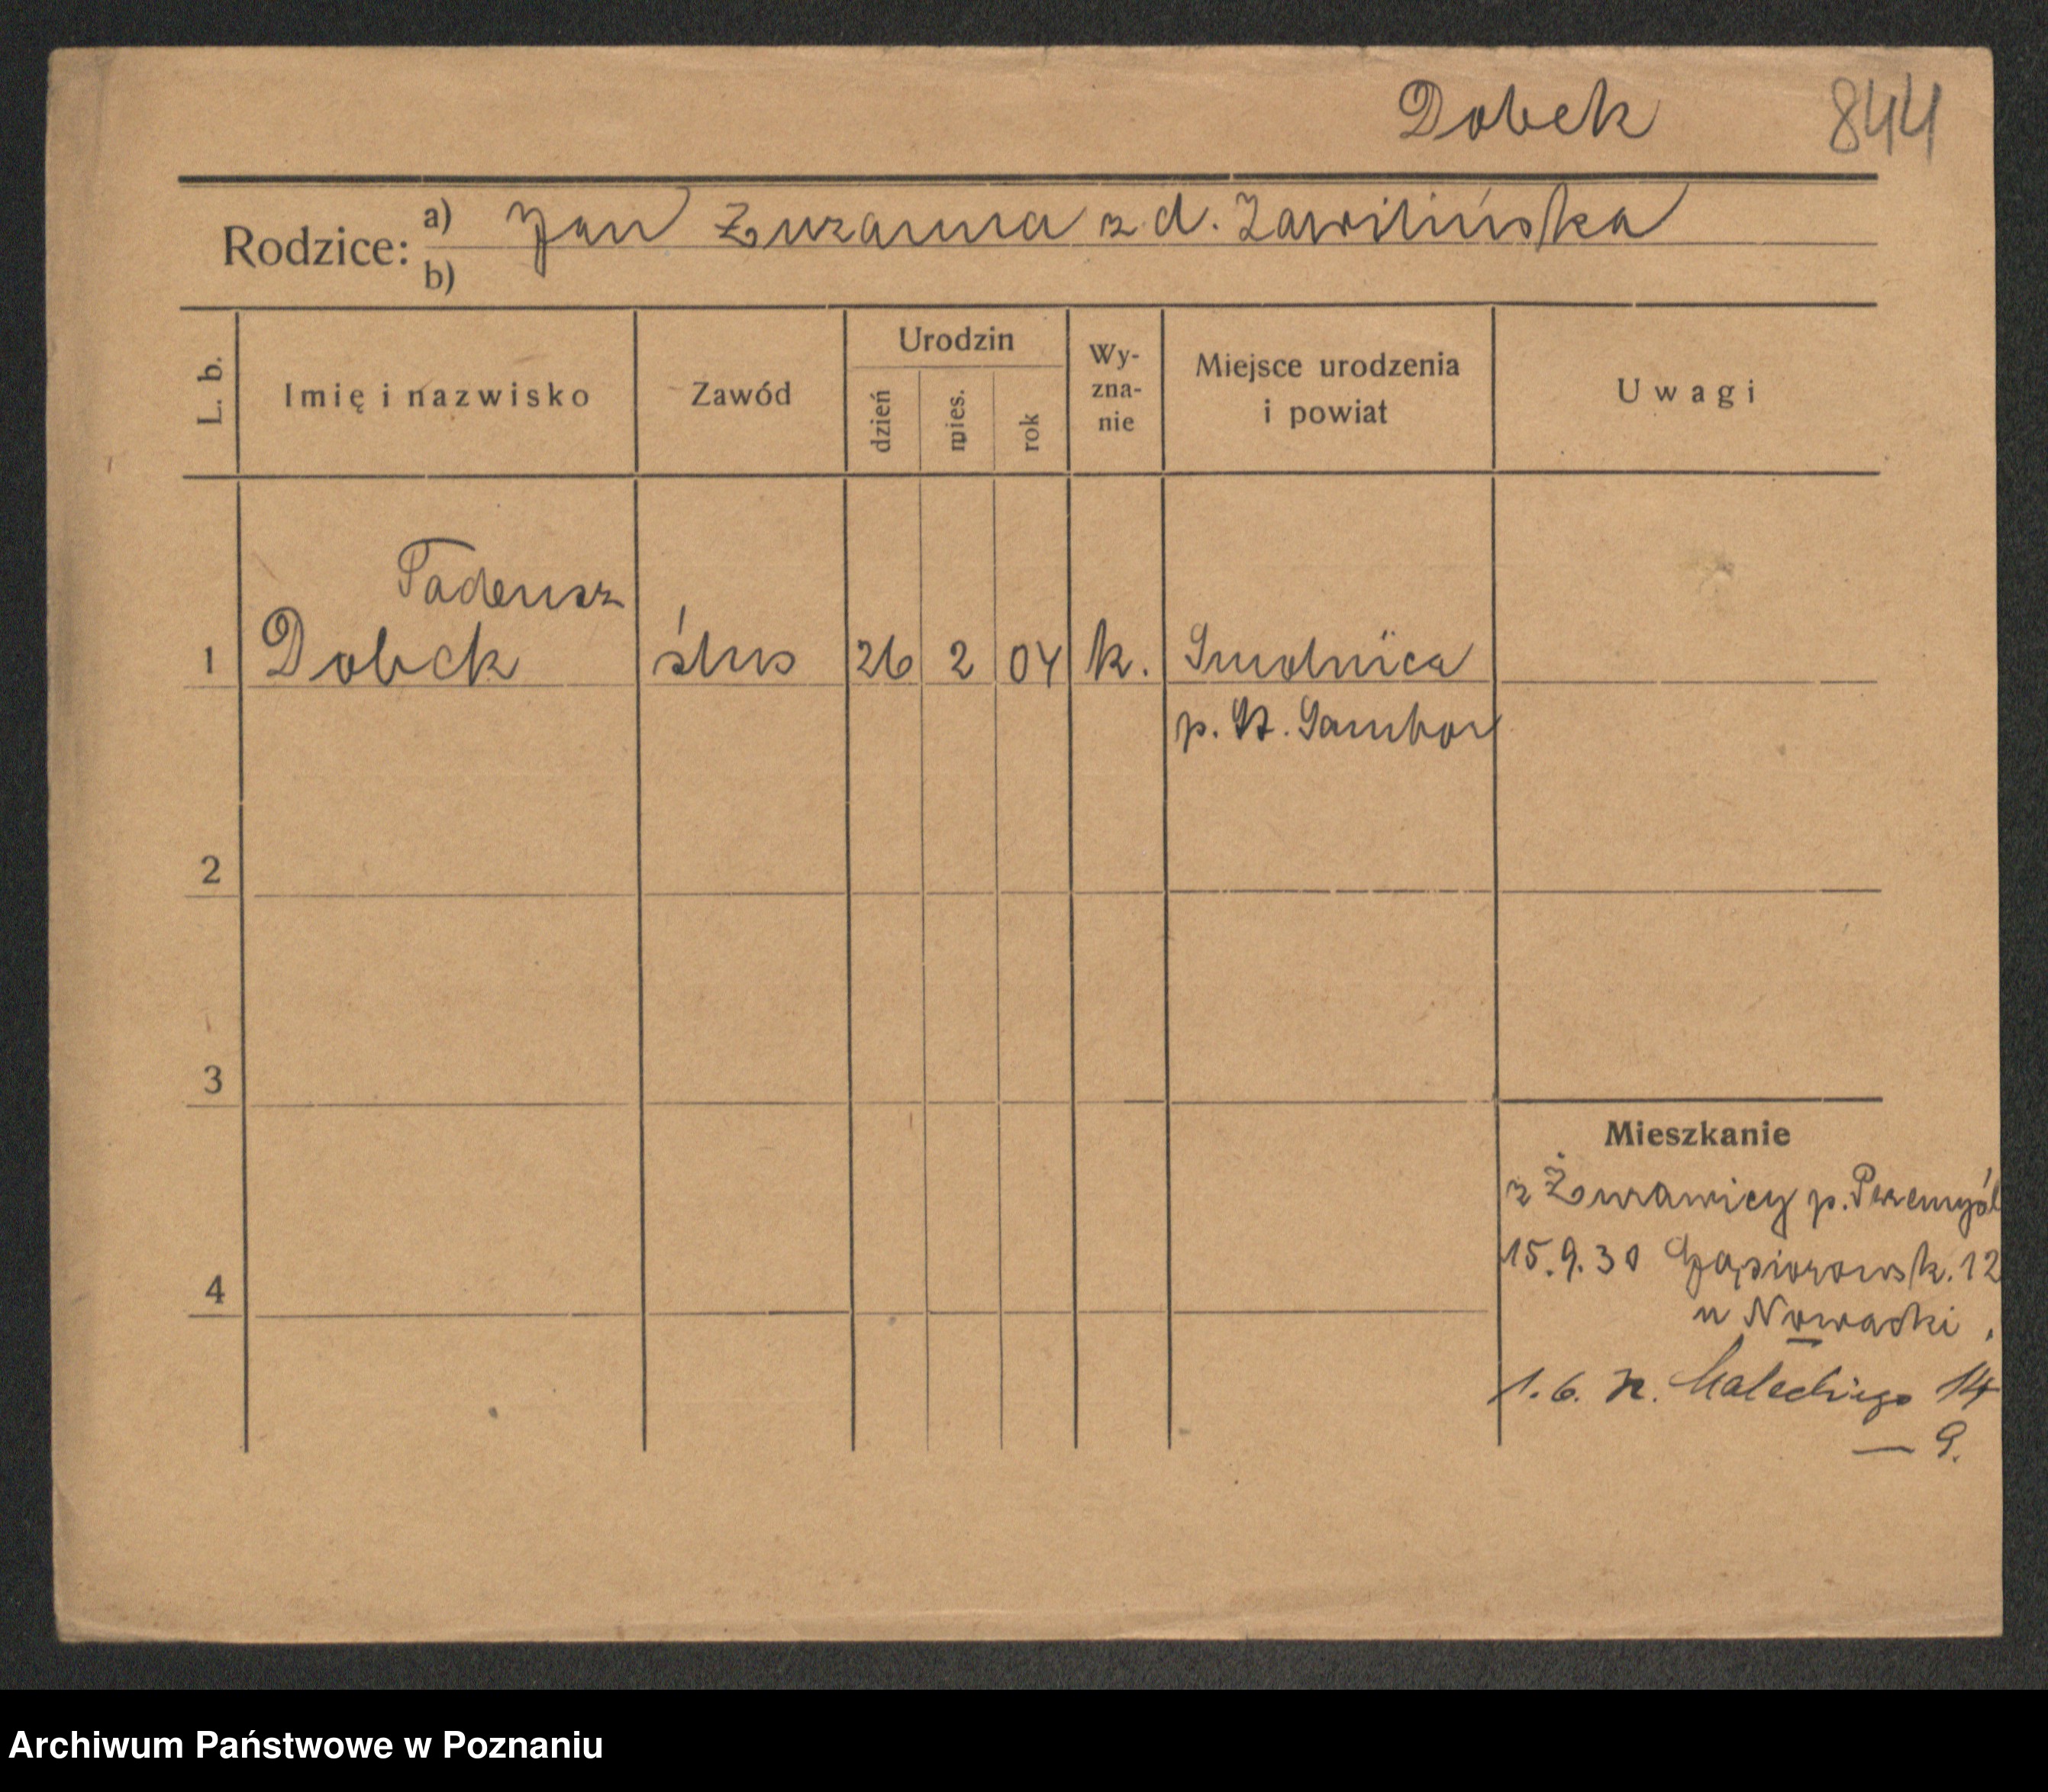 Dobek 844
Rodzice: a) Jan Zuzanna z d. Zawilińska
b)
L. b. Imię i nazwisko Zawód Urodzin dzień mies. rok Wyznanie Miejsce urodzenia i powiat Uwagi
Tadeusz
1 Dobek ślus 26 2 04 k. Smolnica
p. St. Sambor
2
3
Mieszkanie
z Żurawicy p. Przemyśl
15.9.30 Gąsiorowsk. 12
4
u Nowacki
1.6. Małeckiego 14
— 9.
Archiwum Państwowe w Poznaniu